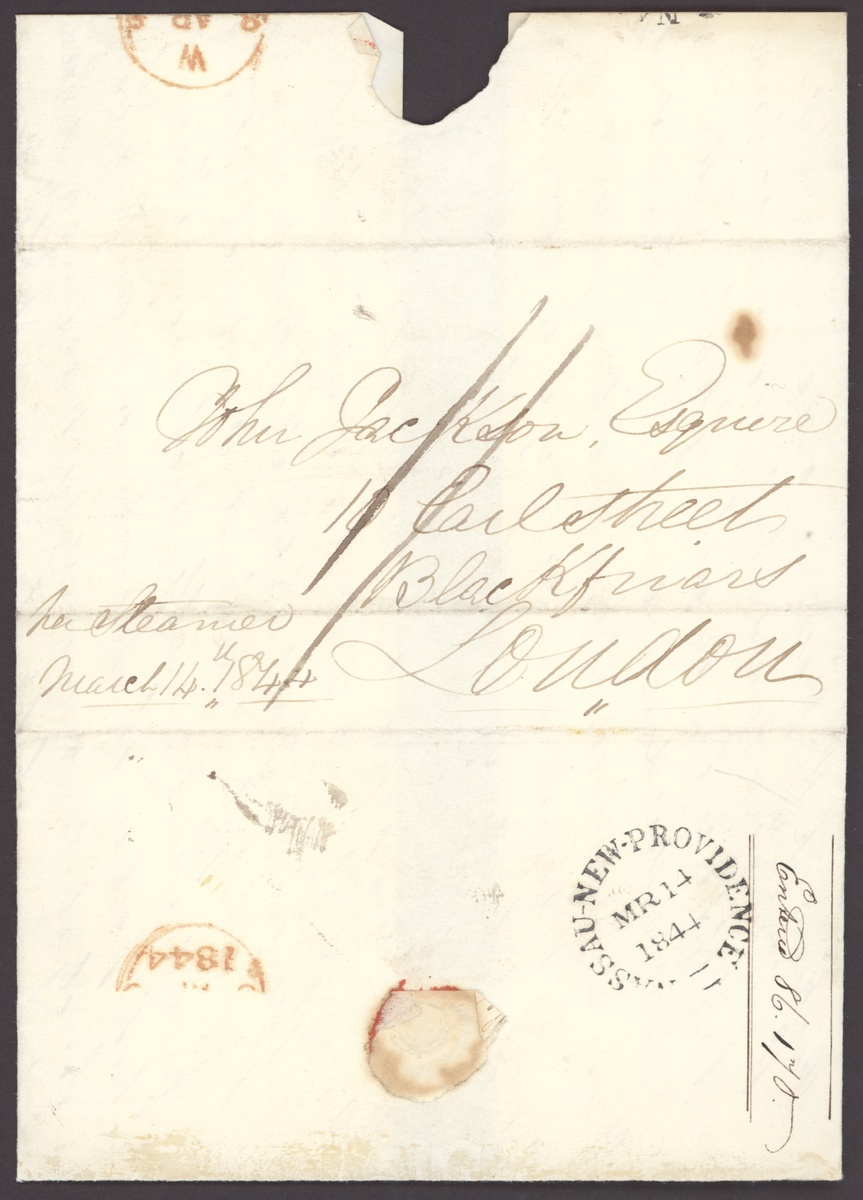 W
8 AP 8
John Jackson, Esquire
10 Earl Street
Blackfriars
London
per Steamer
March 14.th 1844
1844
NASSAU-NEW-PROVIDENCE
MR 14
1844
Entered